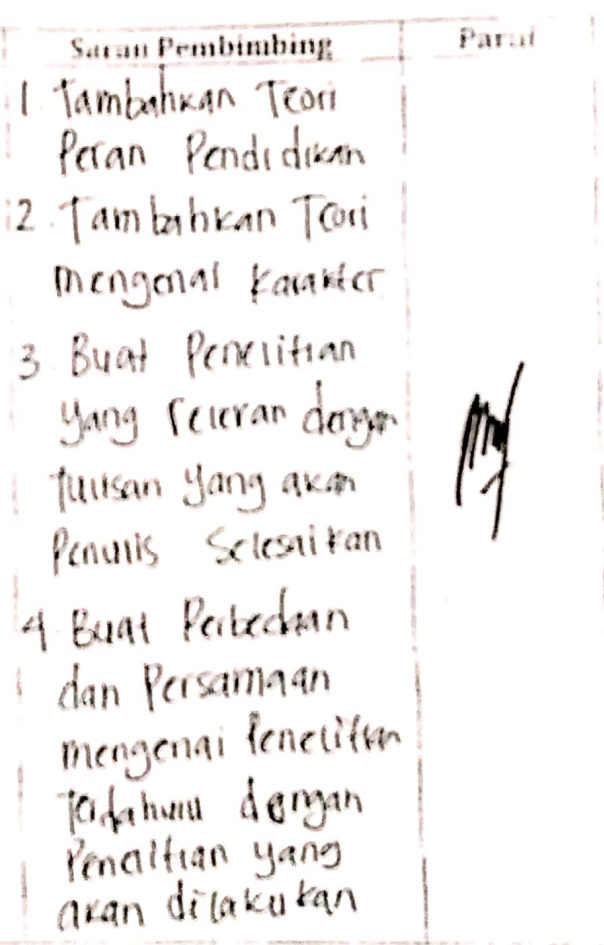 Saran Pembimbing Paraf
1 Tambahkan Teori
Peran Pendidikan
2. Tambahkan Teori
mengenai karakter
3 Buat Penelitian
yang relevan dengan
tulisan yang akan
Penulis Selesaikan
4 Buat Perbedaan
dan Persamaan
mengenai Penelitian
Terdahulu dengan
Penelitian yang
akan dilakukan